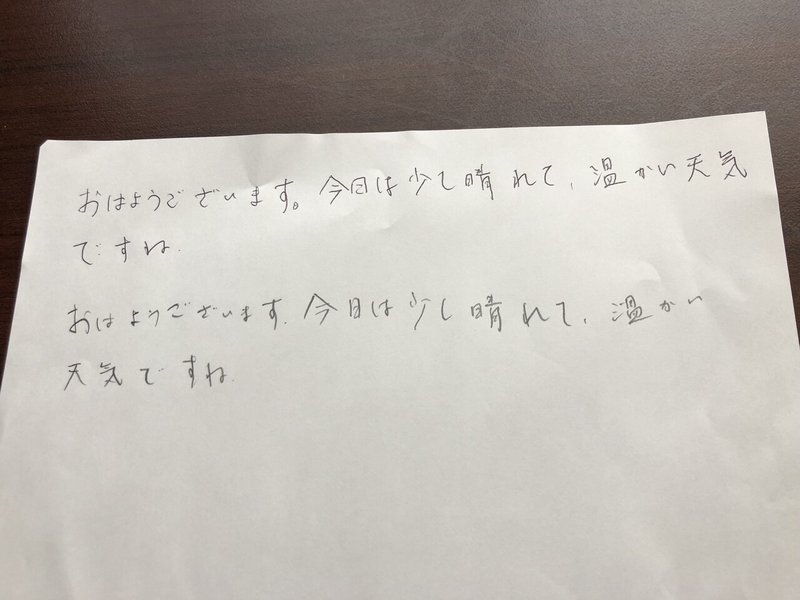 おはようございます。今日は少し晴れて、温かい天気
ですね.
おはようございます.今日は少し晴れて、温かい
天気ですね.